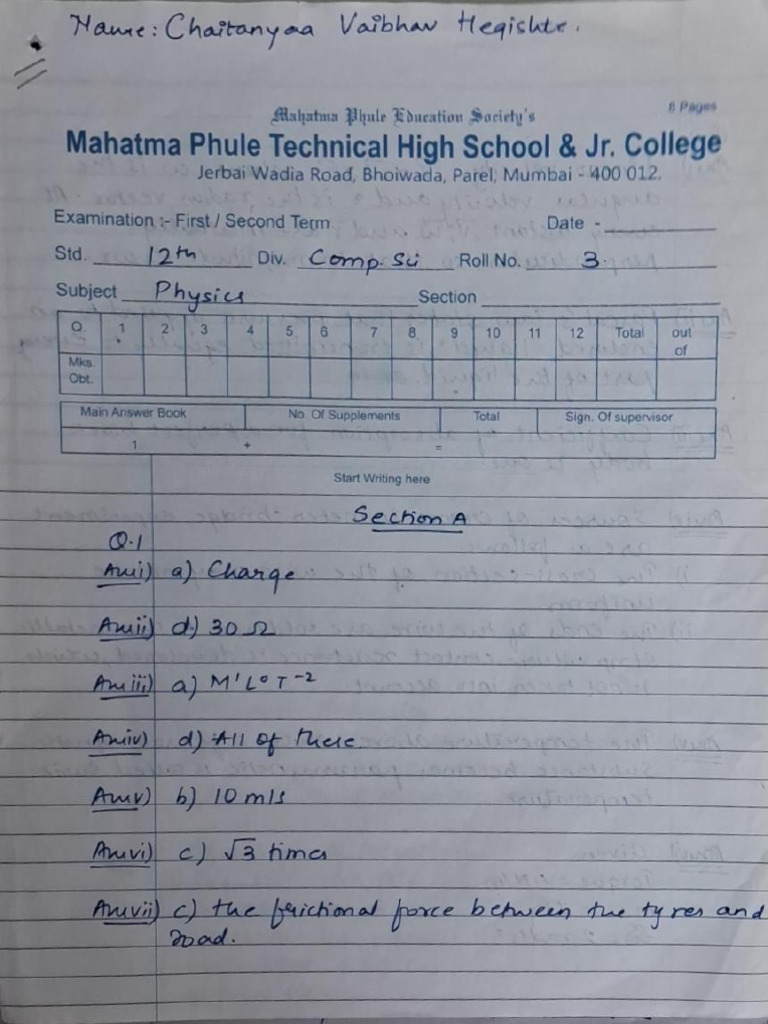 Name: Chaitanyaa Vaibhav Hegishte.
8 Pages
Mahatma Phule Education Society's
Mahatma Phule Technical High School & Jr. College
Jerbai Wadia Road, Bhoiwada, Parel, Mumbai - 400 012.
Examination :- First / Second Term Date -
Std. 12th Div. Comp. Sci Roll No. 3.
Subject Physics Section
Q. 1 2 3 4 5 6 7 8 9 10 11 12 Total out of
Mks. Obt.
Main Answer Book No. Of Supplements Total Sign. Of supervisor
1 + =
Start Writing here
Section A
Q.1
Ans i) a) Charge
Ans ii) d) 30 Ω
Ans iii) a) M¹L⁰T⁻²
Ans iv) d) All of these.
Ans v) b) 10 m/s
Ans vi) c) √3 times
Ans vii) c) the frictional force between the tyres and
road.